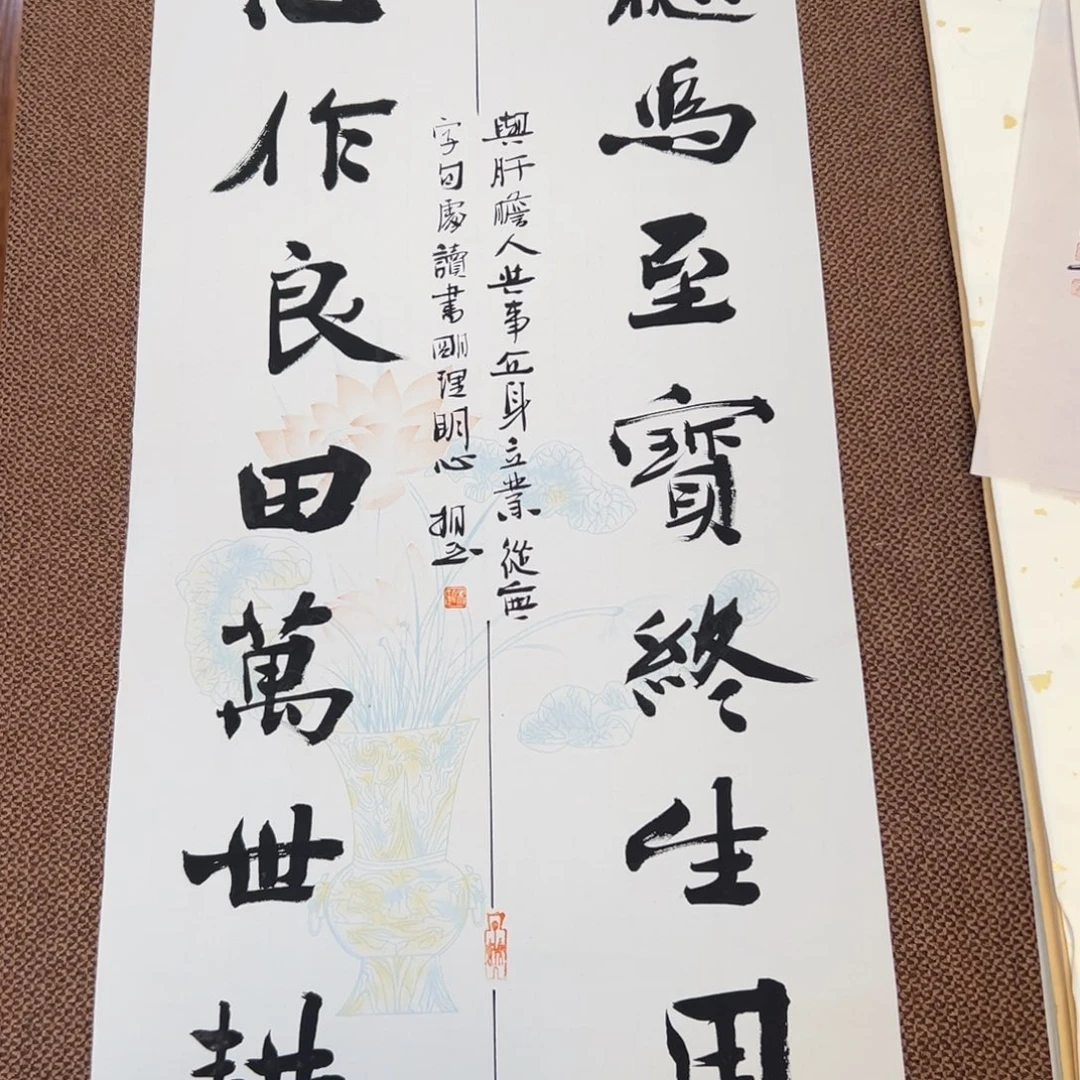 為至寶終生用
與肝膽人共事立身立業從無
字句處讀書朙理明心
作良田萬世耕